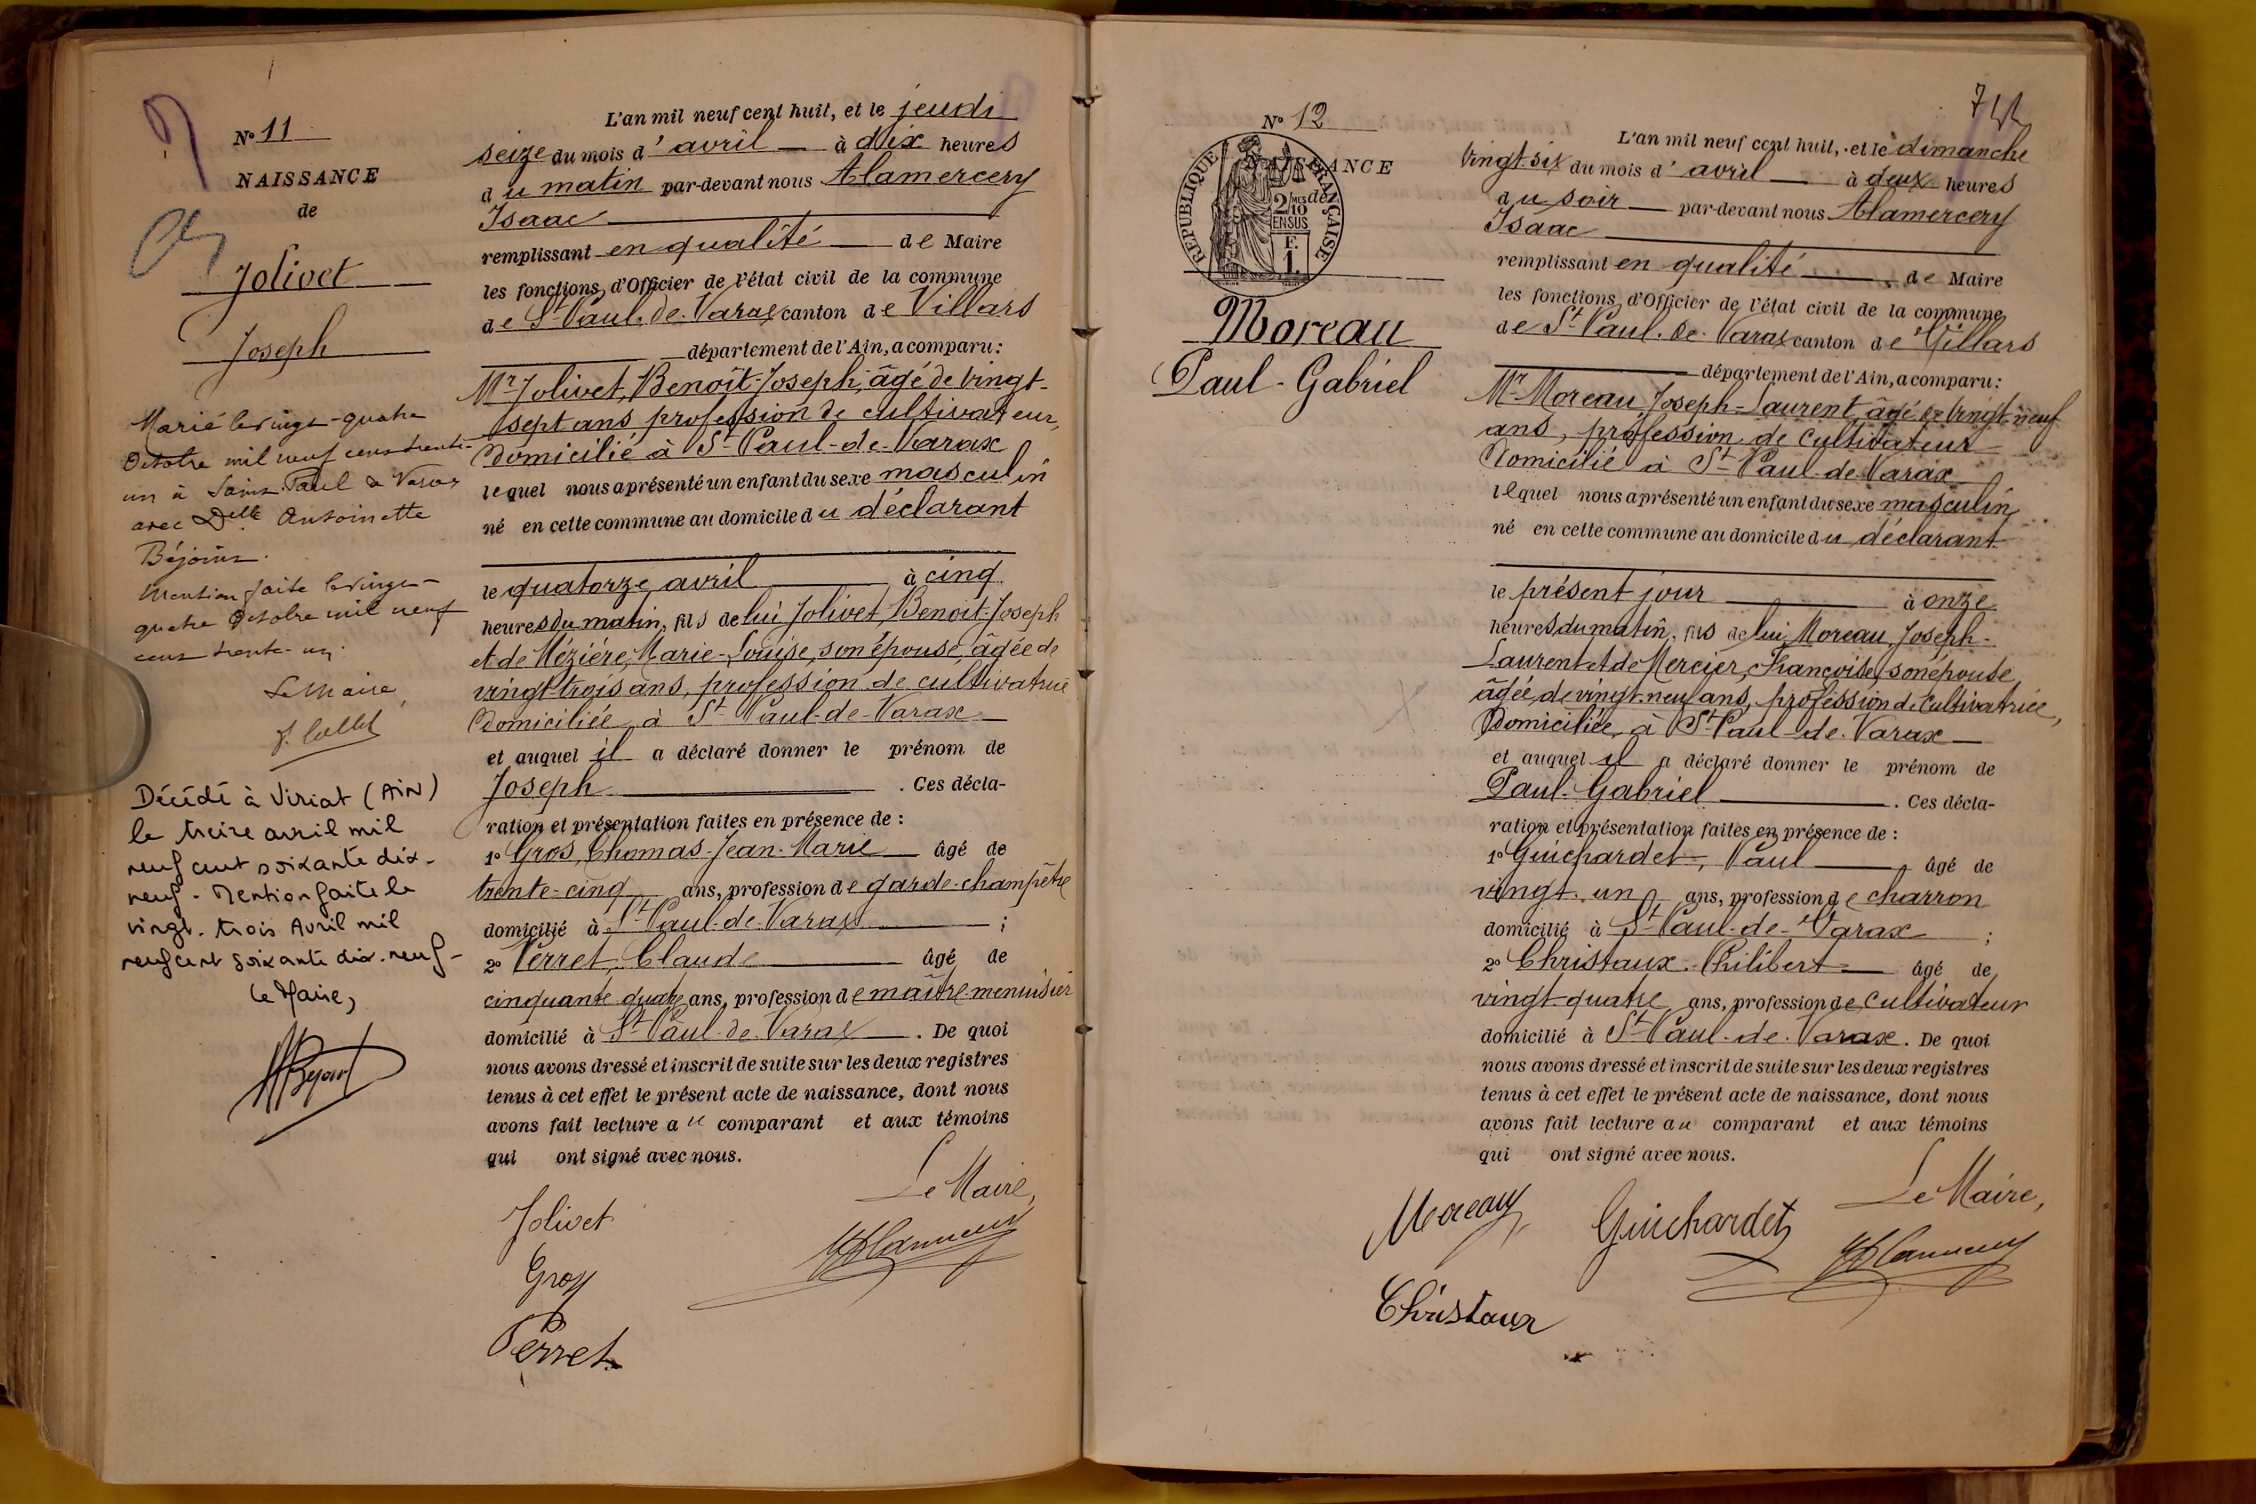 N° 11
NAISSANCE
de
Jolivet
Joseph
Marié le vingt-quatre
Octobre mil neuf cent trente-
un à Saint Paul de Varax
avec Delle Antoinette
Béjoint.
Mention faite le vingt-
quatre Octobre mil neuf
cent trente-un.
Le Maire,
Décédé à Viriat (AIN)
le treize avril mil
neuf cent soixante dix-
neuf - Mention faite le
vingt-trois Avril mil
neuf cent soixante dix-neuf -
Le Maire,
L'an mil neuf cent huit, et le jeudi
seize du mois d'avril à dix heures
du matin par-devant nous Alamercery
Isaac
remplissant en qualité de Maire
les fonctions d'Officier de l'état civil de la commune
de St Paul-de-Varax canton de Villars
département de l'Ain, a comparu:
Mr Jolivet, Benoît-Joseph, âgé de vingt-
sept ans profession de cultivateur,
domicilié à St Paul-de-Varax
lequel nous a présenté un enfant du sexe masculin
né en cette commune au domicile du déclarant
le quatorze avril à cinq
heures du matin, fils de lui Jolivet Benoit-Joseph
et de Mézière, Marie-Louise, son épouse, âgée de
vingt-trois ans, profession de cultivatrice
domiciliée à St Paul-de-Varax
et auquel il a déclaré donner le prénom de
Joseph . Ces décla-
ration et présentation faites en présence de :
1° Gros, Thomas-Jean-Marie âgé de
trente-cinq ans, profession de garde-champêtre
domicilié à St Paul-de-Varax ;
2° Perret, Claude âgé de
cinquante quatre ans, profession de maître-menuisier
domicilié à St Paul-de-Varax . De quoi
nous avons dressé et inscrit de suite sur les deux registres
tenus à cet effet le présent acte de naissance, dont nous
avons fait lecture au comparant et aux témoins
qui ont signé avec nous.
Le Maire,
Jolivet
Gros
Perret
N° 12
NAISSANCE
de
RÉPUBLIQUE FRANÇAISE
2/10 MES
EN SUS
F.
1.
Moreau
Paul-Gabriel
L'an mil neuf cent huit, et le dimanche
vingt-six du mois d'avril à deux heures
du soir par-devant nous Alamercery
Isaac
remplissant en qualité de Maire
les fonctions d'Officier de l'état civil de la commune
de St Paul-de-Varax canton de Villars
département de l'Ain, a comparu:
Mr Moreau Joseph-Laurent, âgé de vingt-neuf
ans, profession de cultivateur
domicilié à St Paul-de-Varax
lequel nous a présenté un enfant du sexe masculin
né en cette commune au domicile du déclarant
le présent jour à onze
heures du matin, fils de lui Moreau, Joseph-
Laurent et de Mercier, Françoise, son épouse,
âgée de vingt-neuf ans, profession de cultivatrice,
domiciliée à St Paul-de-Varax
et auquel il a déclaré donner le prénom de
Paul-Gabriel . Ces décla-
ration et présentation faites en présence de :
1° Guichardet, Paul âgé de
vingt-un ans, profession de charron
domicilié à St Paul-de-Varax ;
2° Christaux-Philibert âgé de
vingt-quatre ans, profession de cultivateur
domicilié à St Paul-de-Varax. De quoi
nous avons dressé et inscrit de suite sur les deux registres
tenus à cet effet le présent acte de naissance, dont nous
avons fait lecture au comparant et aux témoins
qui ont signé avec nous.
Le Maire,
Moreau
Guichardet
Christaux